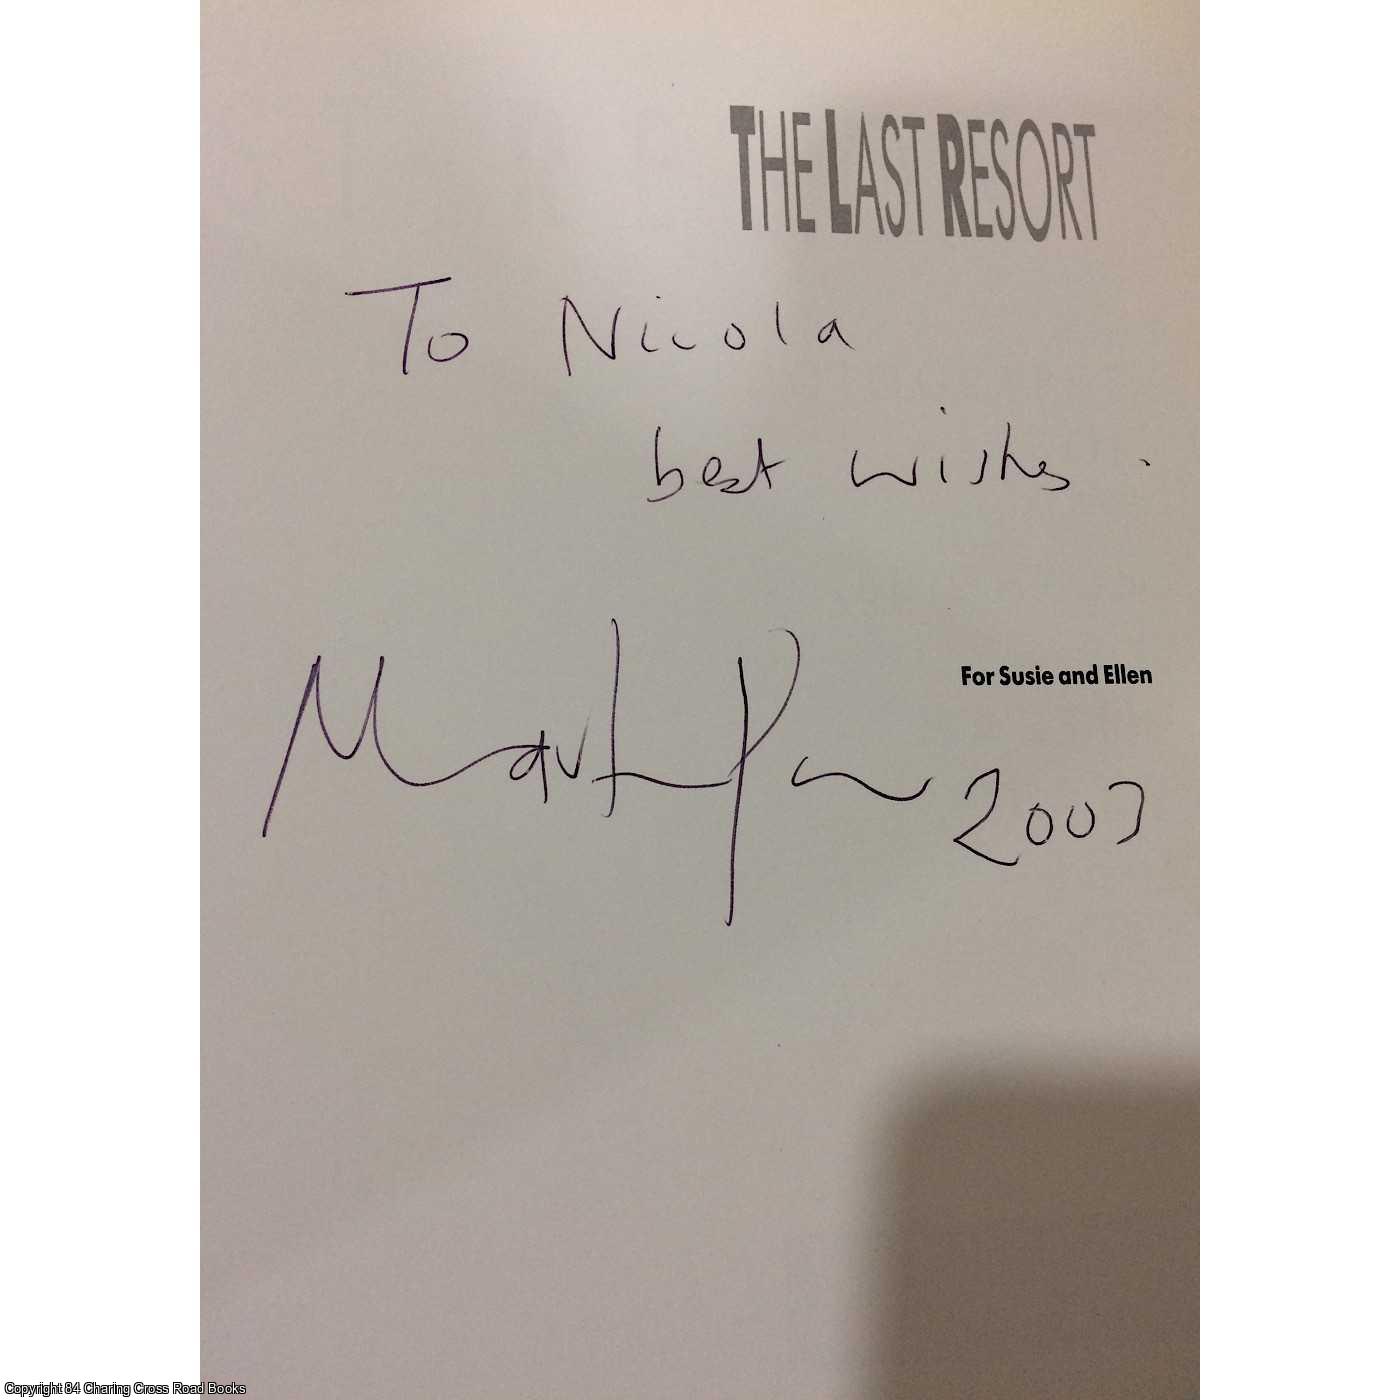 THE LAST RESORT
To Nicola
best wishes.
For Susie and Ellen
Martin Parr 2003
Copyright 84 Charing Cross Road Books